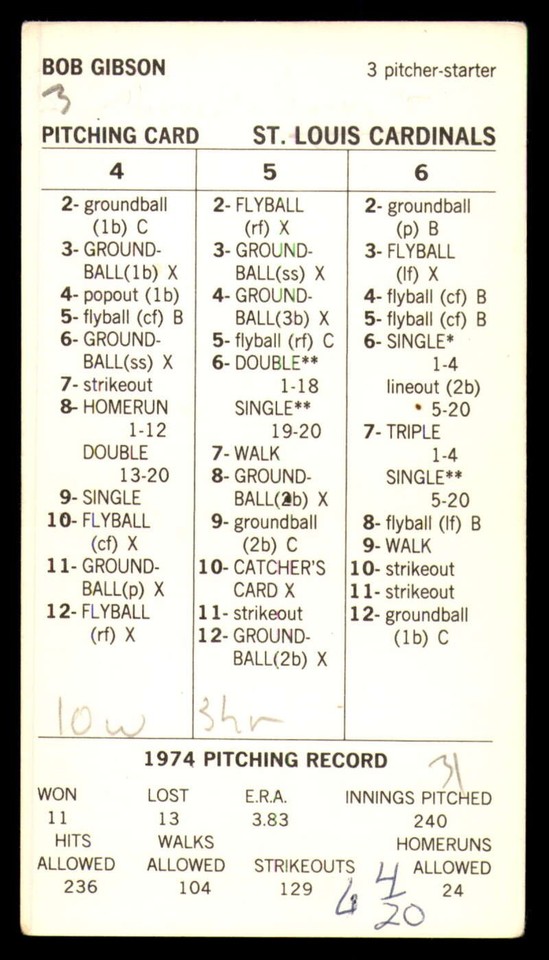 BOB GIBSON 3 pitcher-starter
3
PITCHING CARD ST. LOUIS CARDINALS
4 5 6
2- groundball
(1b) C
3- GROUND-
BALL(1b) X
4- popout (1b)
5- flyball (cf) B
6- GROUND-
BALL(ss) X
7- strikeout
8- HOMERUN
1-12
DOUBLE
13-20
9- SINGLE
10- FLYBALL
(cf) X
11- GROUND-
BALL(p) X
12- FLYBALL
(rf) X
2- FLYBALL
(rf) X
3- GROUND-
BALL(ss) X
4- GROUND-
BALL(3b) X
5- flyball (rf) C
6- DOUBLE**
1-18
SINGLE**
19-20
7- WALK
8- GROUND-
BALL(2b) X
9- groundball
(2b) C
10- CATCHER'S
CARD X
11- strikeout
12- GROUND-
BALL(2b) X
2- groundball
(p) B
3- FLYBALL
(lf) X
4- flyball (cf) B
5- flyball (cf) B
6- SINGLE*
1-4
lineout (2b)
5-20
7- TRIPLE
1-4
SINGLE**
5-20
8- flyball (lf) B
9- WALK
10- strikeout
11- strikeout
12- groundball
(1b) C
10 w 3hr
1974 PITCHING RECORD
31
WON LOST E.R.A. INNINGS PITCHED
11 13 3.83 240
HITS WALKS HOMERUNS
ALLOWED ALLOWED STRIKEOUTS ALLOWED
236 104 129 24
4
20